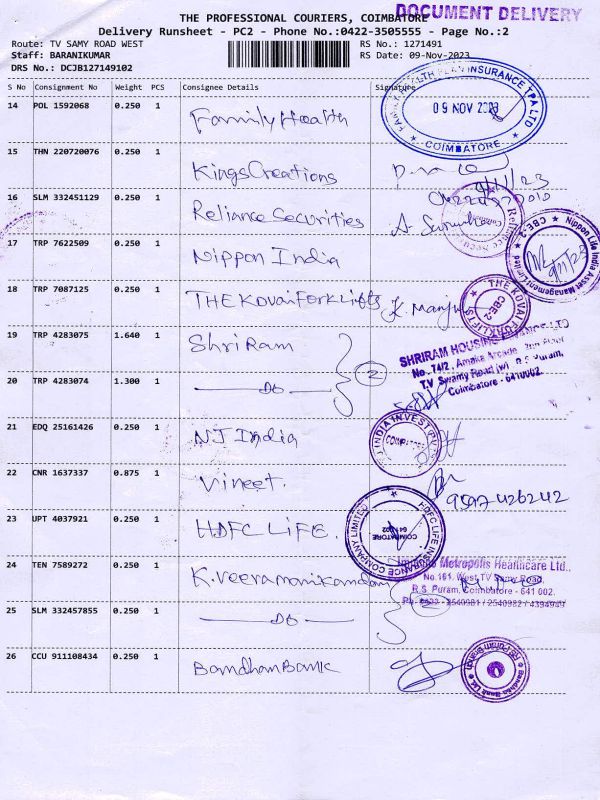 DOCUMENT DELIVERY
THE PROFESSIONAL COURIERS, COIMBATORE
Delivery Runsheet - PC2 - Phone No.:0422-3505555 - Page No.:2
Route: TV SAMY ROAD WEST
RS No.: 1271491
Staff: BARANIKUMAR
RS Date: 09-Nov-2023
DRS No.: DCJB127149102
S No Consignment No Weight PCS Consignee Details Signature
14 POL 1592068 0.250 1 Family Health
FAMILY HEALTH PLAN INSURANCE TPA LTD
09 NOV 2023
COIMBATORE
15 THN 220720076 0.250 1 Kings Creations
9/11/23
16 SLM 332451129 0.250 1 Reliance Securities
17 TRP 7622509 0.250 1 Nippon India
Nippon Life India Asset Management Limited
CBE-2
18 TRP 7087125 0.250 1 THE Kovai Forklifts K. Manju
THE KOVAI FORKLIFTS
CBE-2
19 TRP 4283075 1.640 1 Shri Ram
2
SHRIRAM HOUSING FINANCE LTD
No. 74/2, Amaka Arcade, 2nd Floor
T.V. Swamy Road (w) R.S. Puram,
Coimbatore - 641002.
20 TRP 4283074 1.300 1 Do
21 EDQ 25161426 0.250 1 NJ India
NJ INDIA INVEST
COIMBATORE
22 CNR 1637337 0.875 1 Vineet.
23 UPT 4037921 0.250 1 HDFC LiFE.
HDFC LIFE INSURANCE COMPANY LIMITED
COIMBATORE
641 002
24 TEN 7589272 0.250 1 K. Veeramanikandan
Metropolis Healthcare Ltd.,
No.161, West TV Samy Road,
R.S. Puram, Coimbatore - 641 002.
Ph: 0422 - 2540981 / 2540982 / 4394949
25 SLM 332457855 0.250 1 Do
26 CCU 911108434 0.250 1 Bandhan Bank
Bandhan Bank Ltd.